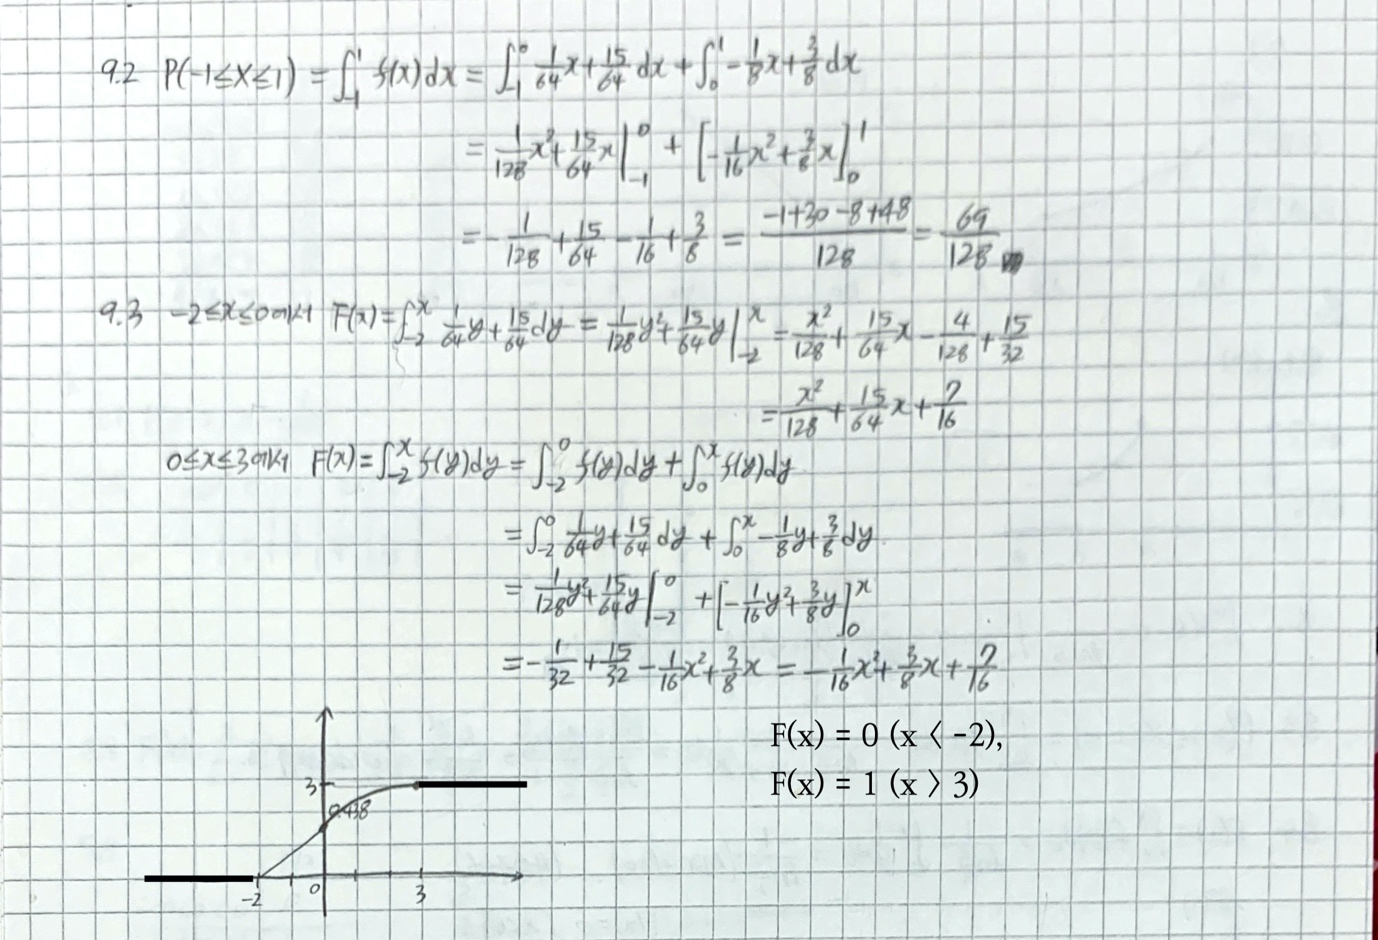 9.2 P(-1≤X≤1) = ∫_{-1}^{1} f(x)dx = ∫_{-1}^{0} 1/64 x + 15/64 dx + ∫_{0}^{1} -1/8 x + 3/8 dx
= 1/128 x² + 15/64 x |_{-1}^{0} + [-1/16 x² + 3/8 x]_{0}^{1}
= -1/128 + 15/64 - 1/16 + 3/8 = (-1+30-8+48)/128 = 69/128
9.3 -2≤x≤0에서 F(x) = ∫_{-2}^{x} 1/64 y + 15/64 dy = 1/128 y² + 15/64 y |_{-2}^{x} = x²/128 + 15/64 x - 4/128 + 15/32
= x²/128 + 15/64 x + 7/16
0≤x≤3에서 F(x) = ∫_{-2}^{x} f(y)dy = ∫_{-2}^{0} f(y)dy + ∫_{0}^{x} f(y)dy
= ∫_{-2}^{0} 1/64 y + 15/64 dy + ∫_{0}^{x} -1/8 y + 3/8 dy
= 1/128 y² + 15/64 y |_{-2}^{0} + [-1/16 y² + 3/8 y]_{0}^{x}
= -1/32 + 15/32 - 1/16 x² + 3/8 x = -1/16 x² + 3/8 x + 7/16
F(x) = 0 (x < -2),
F(x) = 1 (x > 3)
3
0.438
-2 0 3